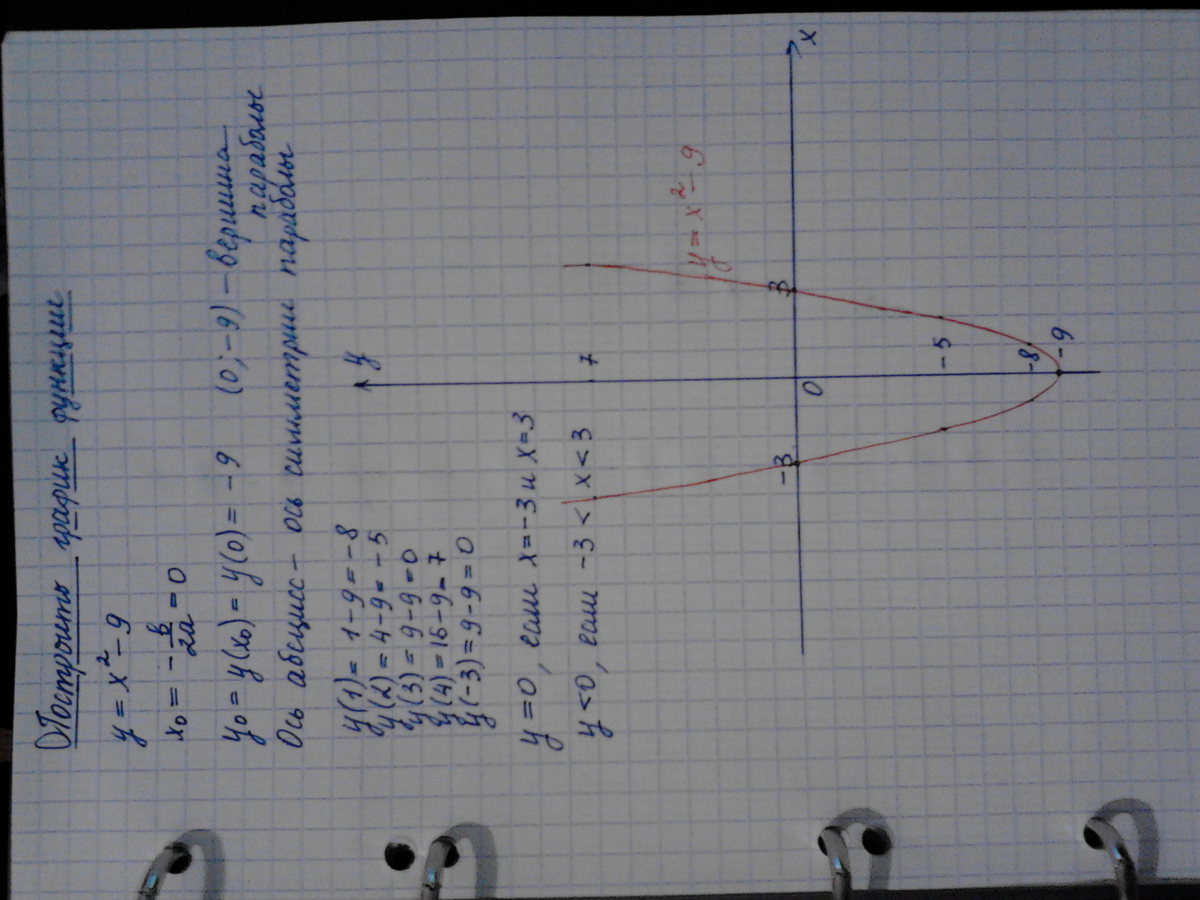 Построить график функции
y = x² - 9
x₀ = - в/2a = 0
y₀ = y(x₀) = y(0) = -9 (0; -9) - вершина
параболы
Ось абсцисс - ось симметрии параболы
y(1) = 1 - 9 = -8
y(2) = 4 - 9 = -5
y(3) = 9 - 9 = 0
y(4) = 16 - 9 = 7
y(-3) = 9 - 9 = 0
y = 0, если x = -3 и x = 3
y < 0, если -3 < x < 3
y
7
y = x² - 9
-3
3
x
0
-5
-8
-9